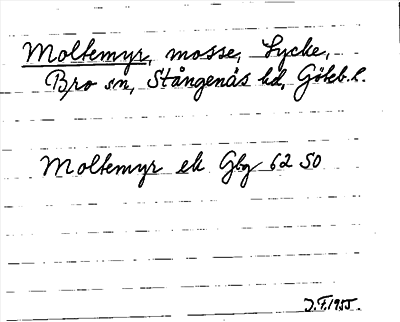 Moltemyr, mosse, Lycke,
Bro sn, Stångenäs hd, Göteb. l.
Moltemyr ek Gbg 62 SO
J.F. 1955.